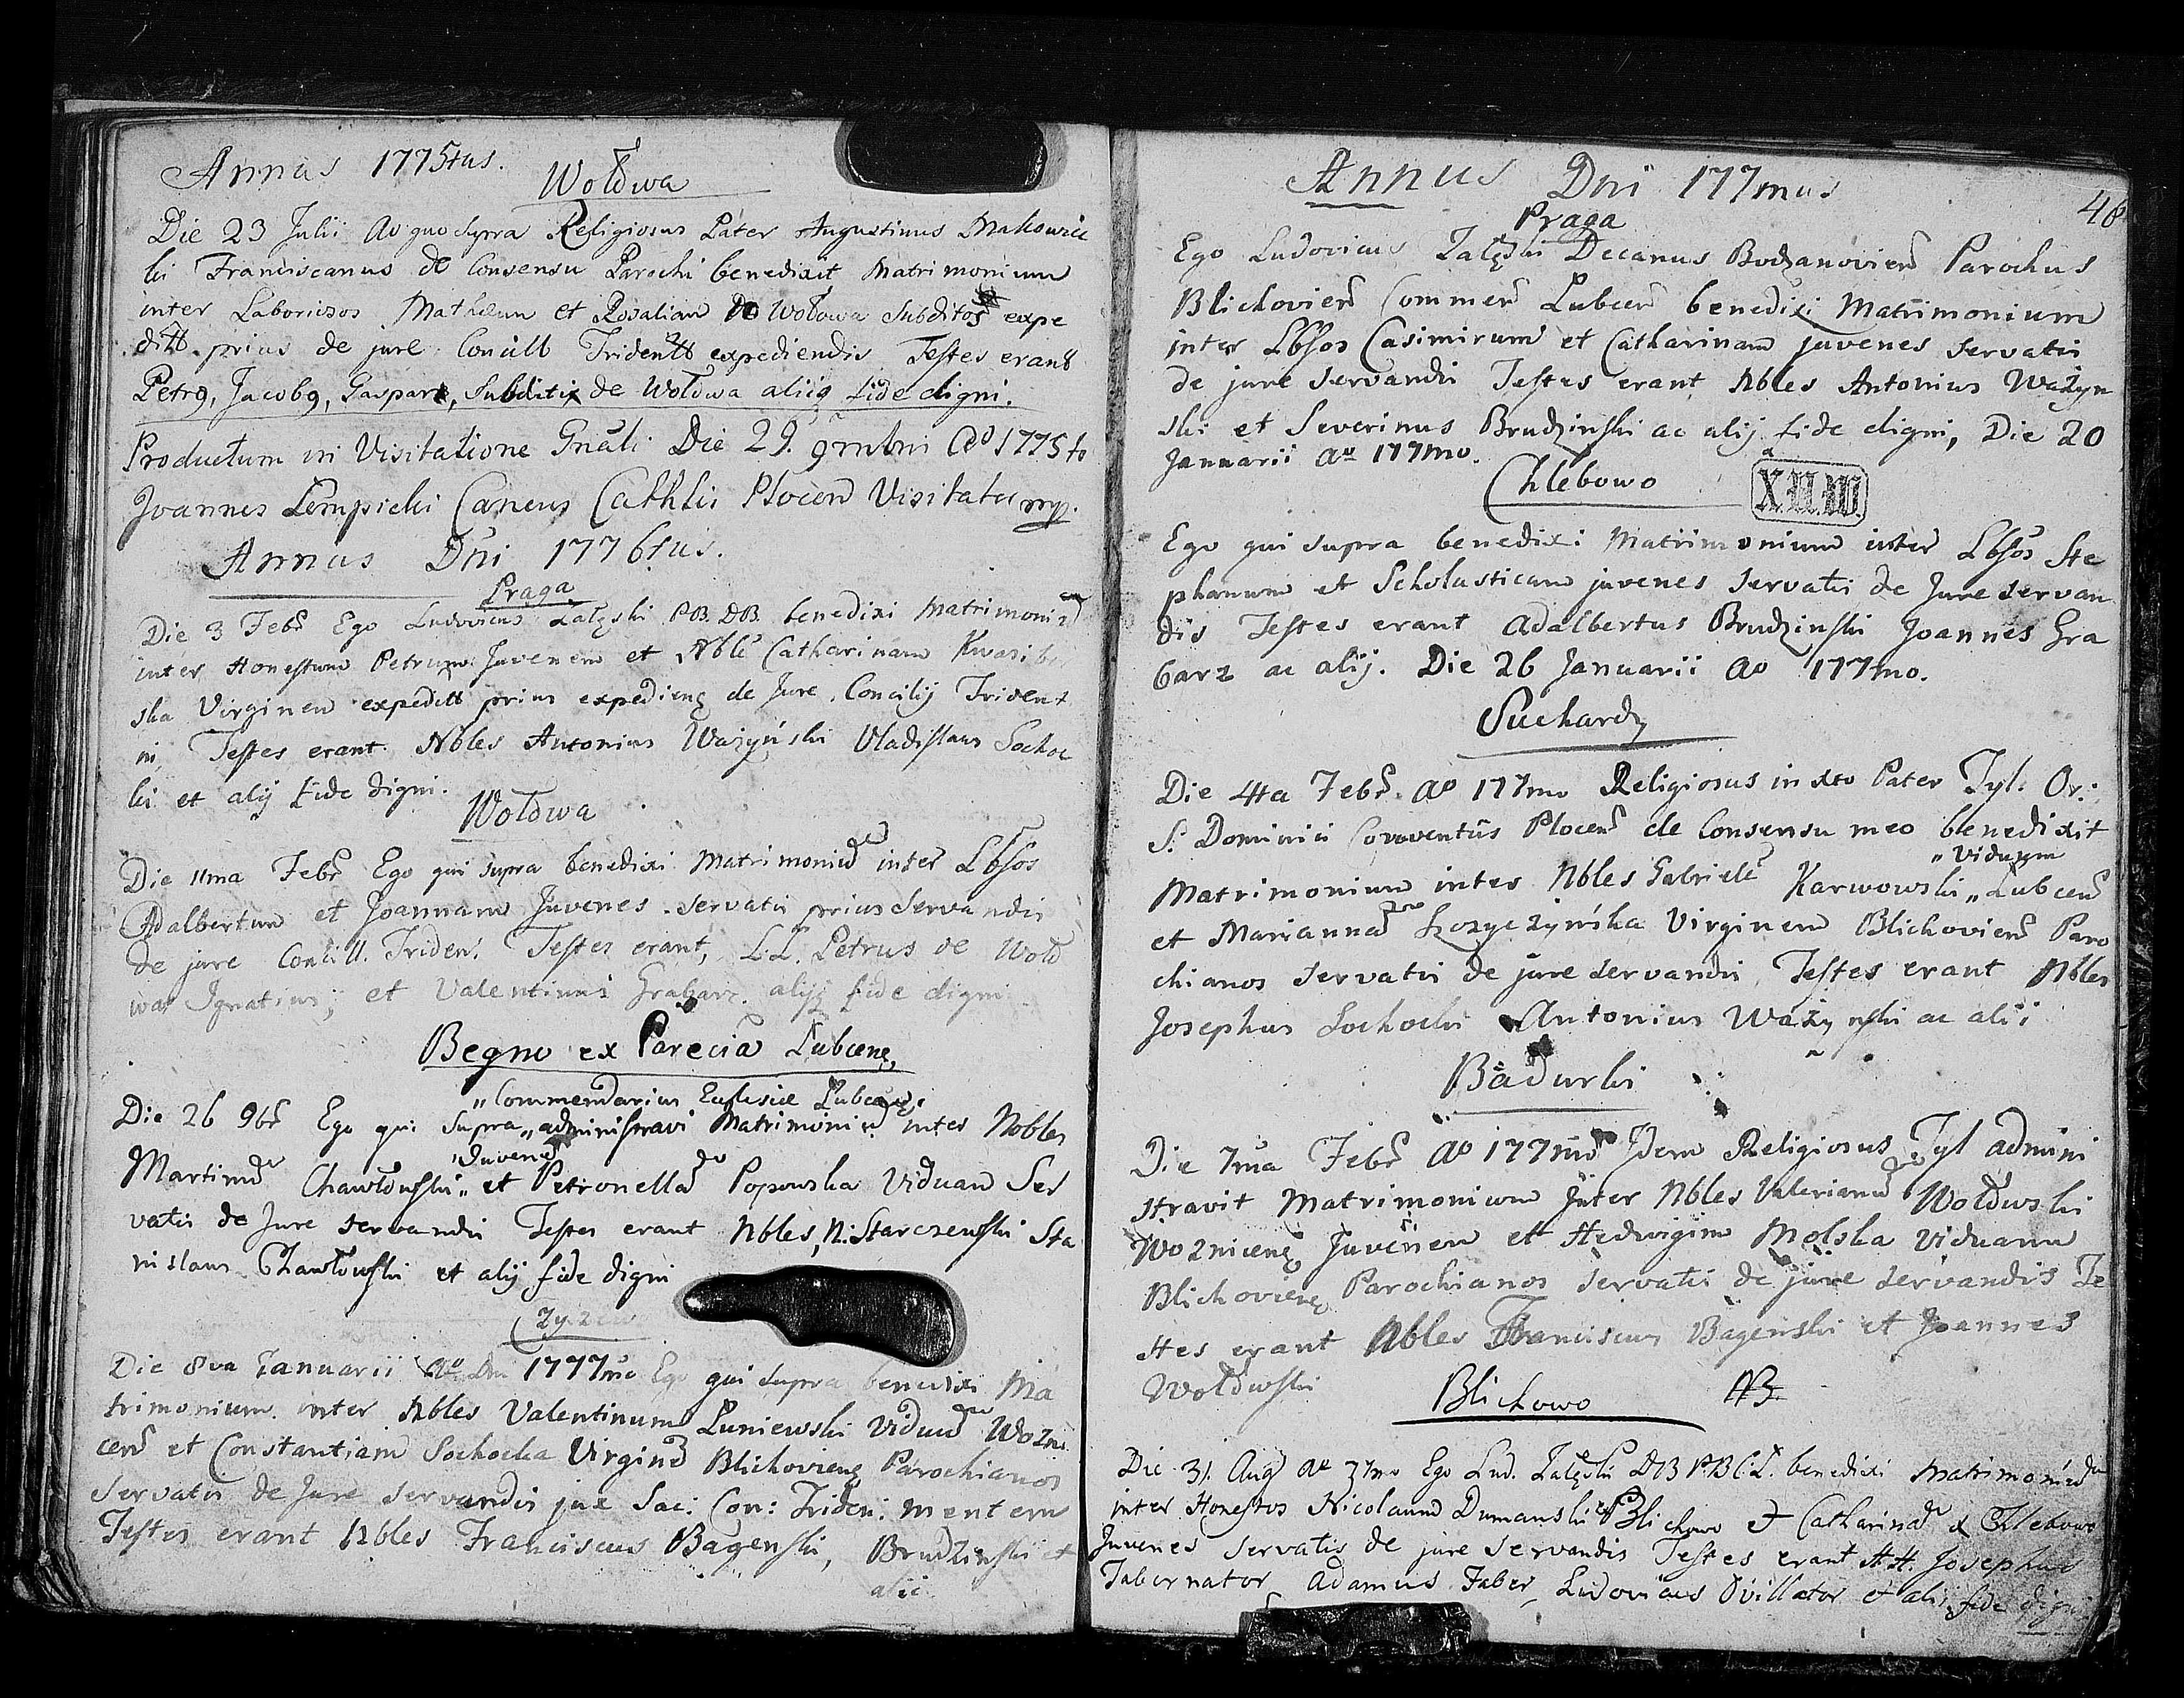 Annus 1775tus.
Wołdwa
Die 23 Julii Ao quo supra Religiosus Pater Augustinus Makowic
ki Franciscanus de Consensu Parochi benedixit Matrimonium
inter Laboriosos Mathæum et Rosaliam de Wołdwa Subditos expe
ditt. prius de jure Concill Tridentt expediendis Testes erant
Petrg, Jacobg, Gaspar, Subditi de Wołdwa aliiq fide digni.
Productum in Visitatione Gnãli Die 29. 9mbri Ao 1775to
Joannes Lempicki Cancus Cathlis Plocen Visitator mp.
Annus Dni 1776tus.
Praga
Die 3 Febr Ego Ludovicus Załęski PB. DB. benedixi Matrimoniu
inter Honestum Petrum Juvenem et Nble Catharinam Kwasibor
ska Virginem expeditt prius expedieng de Jure Concilij Trident
ni, Testes erant Nbles Antonius Ważyński Vladislaus Sochoc
ki et alij fide digni.
Wołdwa
Die 11ma Febr Ego qui supra benedixi Matrimoniu inter Lbsos
Adalbertum et Joannam Juvenes servatis prius servandis
de jure Concill. Triden. Testes erant, LL. Petrus de Wołd
wa Ignatius, et Valentinus Grabarz. alijq fide digni
Begno ex Parecia Lubceng,
"Commendarius Eccl:siæ Lubceng.
Die 26 9br Ego qui supra "administravi Matrimoniu inter Nobles
"Juvene
Martinu Chawłowski" et Petronella Popowska Viduam Ser
vatis de Jure servandis Testes erant Nbles, N. Starczewski Sta
nislaus Chawłowski et alij fide digni
Zyzew
Die 8va Januarii Ao Dni 1777mo Ego qui supra benedixi Ma
trimonium inter Nbles Valentinum Łuniewski Viduu Wozni
cen et Constantiam Sochocka Virgine Blichovieng Parochianos
servatis de Jure servandis jux Sac: Con: Triden: mentem
Testes erant Nbles Franciscus Bagenski, Brudzinski et
alii
Annus Dni 177mus
48
Praga
Ego Ludovicus Załęski Decanus Bodzanovien Parochus
Blichovien Commen Lubcen benedixi Matrimonium
inter Lbsos Casimirum et Catharinam juvenes servatis
de jure servandis Testes erant Nbles Antonius Ważyn
ski et Severinus Brudzinski ac alij fide digni, Die 20
Januarii Ao 177mo.
Chlebowo
Ego qui supra benedixi Matrimonium inter Lbsos Ste
phanum et Scholasticam juvenes servatis de Jure servan
dis Testes erant Adalbertus Brudzinski Joannes Gra
barz ac alij. Die 26 Januarii Ao 177mo.
Suchardy
Die 4ta Febr. Ao 177mo Religiosus in Xto Pater Tyl: Or:
S. Dominici Conventûs Plocen de Consensu meo benedixit
"viduum
Matrimonium inter Nbles Gabriele Karwowski "Lubcen
et Marianna Virginem Blichovien Paro
chianos servatis de jure servandis, Testes erant Nbles
Josephus Sochocki Antonius Ważynski ac alii
Badurki
Die 7ma Febr Ao 177mo Idem Religiosus Tyl admini
stravit Matrimonium Inter Nbles Valerianu Wołdwski
Wozniceng Juvenem et Hedwigim Molska viduam
Blichovieng Parochianos servatis de jure servandis Te
stes erant Nbles Franciscus Bagenski et Joannes
Wołdwski
Blichowo NB
Die 31. Aug Ao 77mo Ego Lud. Załęski DB P.B C.L. benedixi Matrimoniu
inter Honestos Nicolaum Dumanski Blichowo et Catharina Chlebowo
Juvenes servatis de jure servandis Testes erant HH. Josephus
Tabernator Adamus Faber, Ludovicus Ovillator et alii fide digni